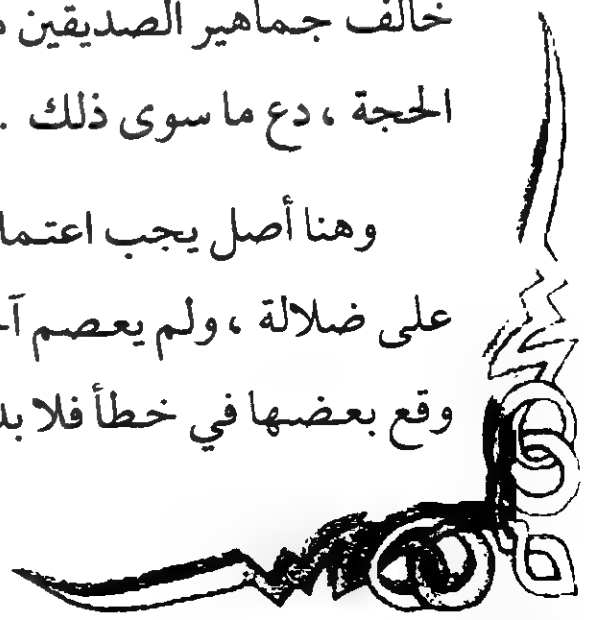 خالف جماهير الصديقين
الحجة ، دع ما سوى ذلك .
وهنا أصل يجب اعتما
على ضلالة ، ولم يعصم آ
وقع بعضها في خطأ فلا بد